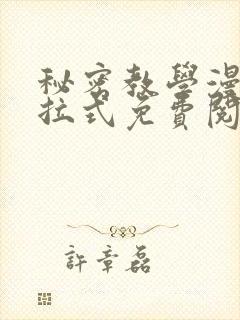 秘密教學漫
拉式免費閱
許章磊